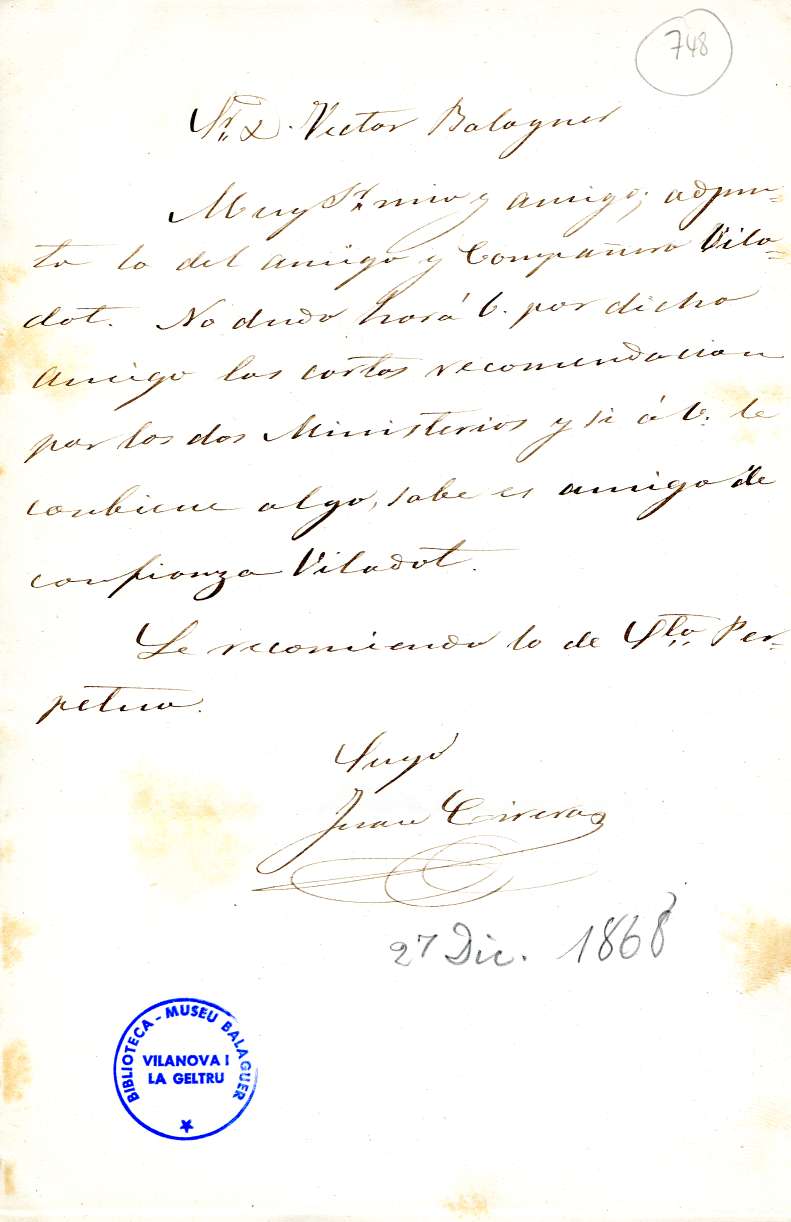 748
Sr. D. Victor Balaguer
Muy Sr. mio y amigo; adjun=
ta la del amigo y Compañero Vila=
dot. No dudo hará V. por dicho
amigo las cartas recomendacion
par los dos Ministerios y si á V. le
conbiene algo, sabe es amigo de
confianza Viladot.
Le recomiendo lo de Sta. Per=
petua.
Suyo
Juan Cirera
27 Dic. 1868
BIBLIOTECA - MUSEU BALAGUER
VILANOVA I
LA GELTRU